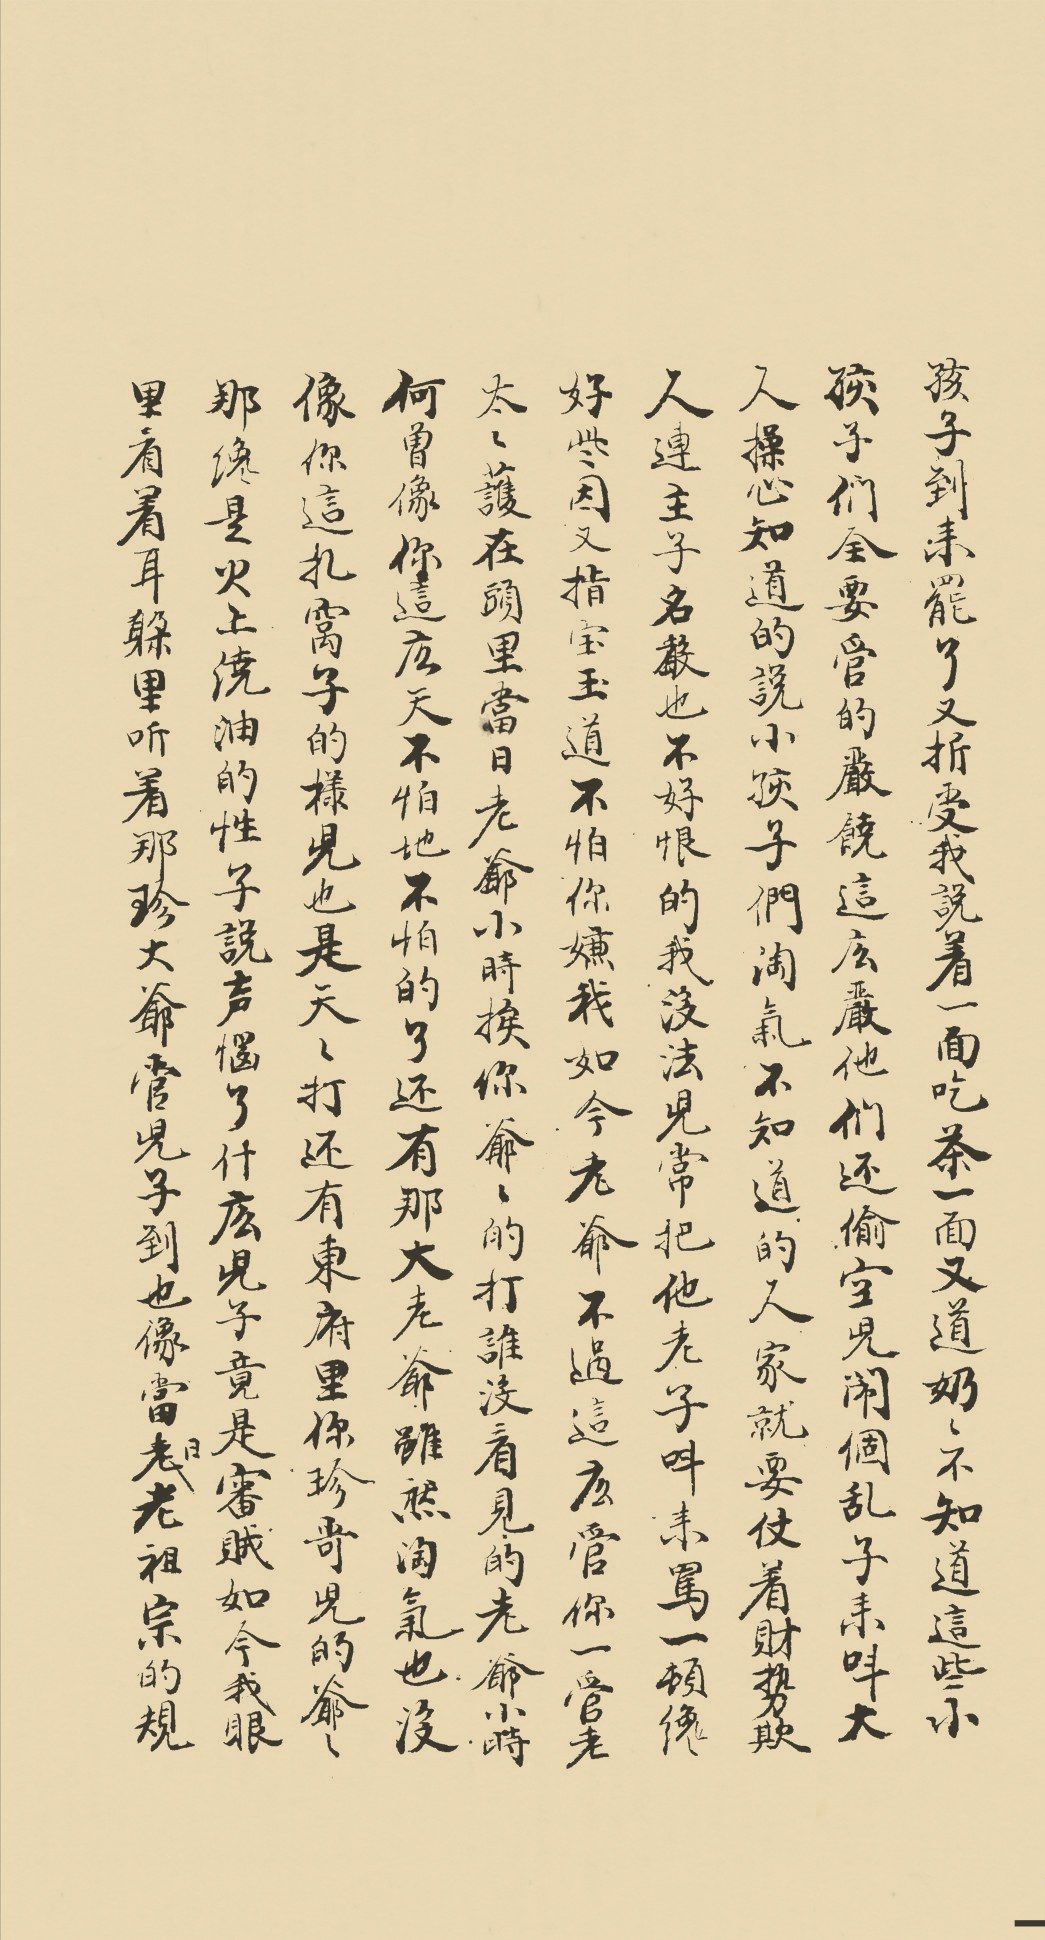 孩子到来罷了又折受我説着一面吃茶一面又道奶〻不知道這些小
孩子們全要管的嚴饒這庅嚴他们还偷空児鬧個乱子来呌大
人操心知道的説小孩子們淘氣不知道的人家就要仗着財势欺
人連主子名聲也不好恨的我没法児常把他老子呌来罵一頓纔
好些因又指宝玉道不怕你嫌我如今老爺不過這庅管你一管老
太〻護在頭里當日老爺小時挨你爺〻的打誰没看見的老爺小時
何曾像你這庅天不怕地不怕的了还有那大老爺雖然淘氣也没
像你這扎窩子的様児也是天〻打还有東府里你珍哥児的爺〻
那纔是火上澆油的性子説声惱了什庅児子竟是審賊如今我眼
里看着耳躲里听着那珍大爺管児子到也像當日老老祖宗的規